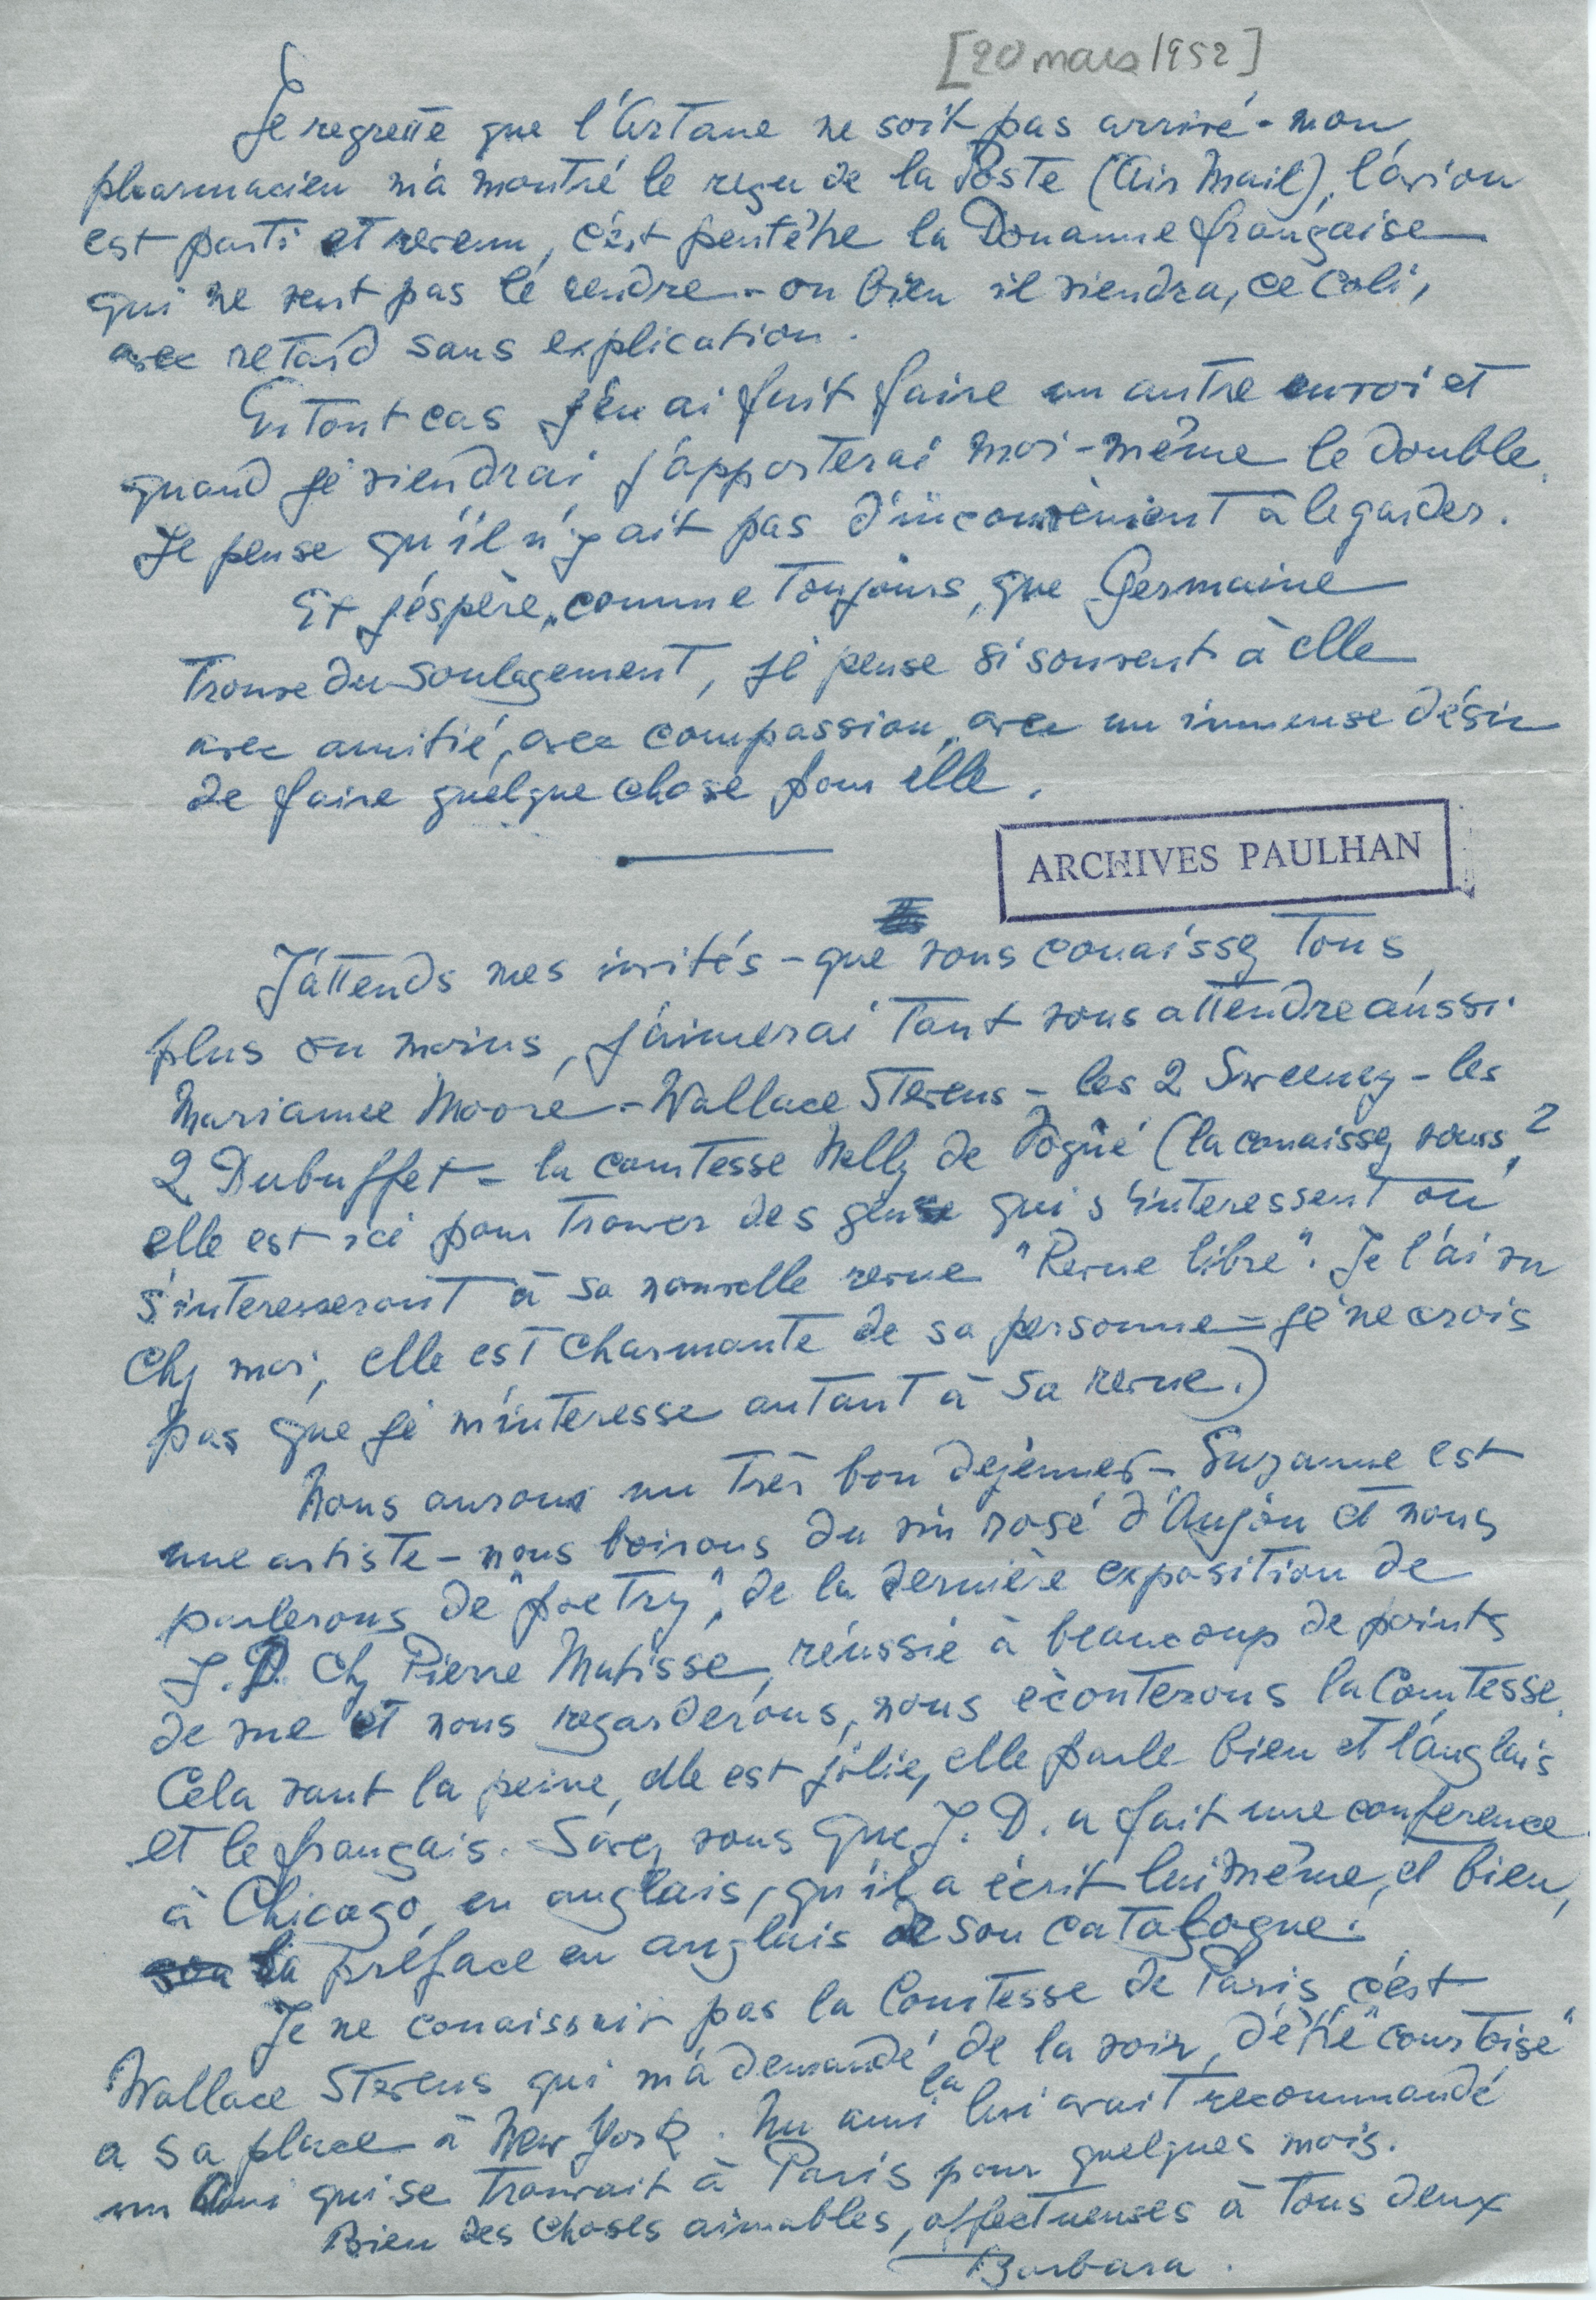 [20 mars 1952]
Je regrette que l'Artane ne soit pas arrivé - mon
pharmacien m'a montré le reçu de la Poste (Air Mail), l'avion
est parti et revenu, c'est peutêtre la Douanne française
qui ne veut pas le rendre - ou bien il viendra, ce coli,
avec retard sans explication.
En tout cas j'en ai fait faire un autre envoi et
quand je viendrai j'apporterai moi-même le double.
Je pense qu'il n'y ait pas d'inconvénient à le garder.
Et j'éspère, comme toujours, que Germaine
trouve du soulagement, je pense si souvent à elle
avec amitié, avec compassion, avec un immense désir
de faire quelque chose pour elle.
ARCHIVES PAULHAN
J'attends mes invités - que vous conaissez tous
plus ou moins, j'aimerai tant vous attendre aussi.
Marianne Moore - Wallace Stevens - les 2 Sweeney - les
2 Dubuffet - la comtesse Nelly de Vogüé (la conaissez vous?
elle est ici pour trouver des gens qui s'interessent ou
s'interesseront à sa nouvelle revue "Revue libre". Je l'ai vu
chez moi, elle est charmante de sa personne - je ne crois
pas que je m'interesse autant à sa revue.)
Nous aurons un très bon dejeuner - Suzanne est
une artiste - nous boirons du vin rosé d'Anjou et nous
parlerons de "poetry", de la dernière exposition de
J.D. chez Pierre Matisse, réussie à beaucoup de points
de vue et nous regarderons, nous écouterons la Comtesse.
Cela vaut la peine, elle est jolie, elle parle bien et l'anglais
et le français. Savez vous que J.D. a fait une conference
à Chicago, en anglais, qu'il a écrit lui même, et bien,
la préface en anglais de son catalogue.
Je ne conaissait pas la Comtesse de Paris, c'est
Wallace Stevens qui m'a demandé de la voir, d'être "courtoise"
a sa place à New York. Un ami la lui avait recommandé
un ami qui se trouvait à Paris pour quelques mois.
Bien des choses aimables, affectueuses à tous deux
Barbara.